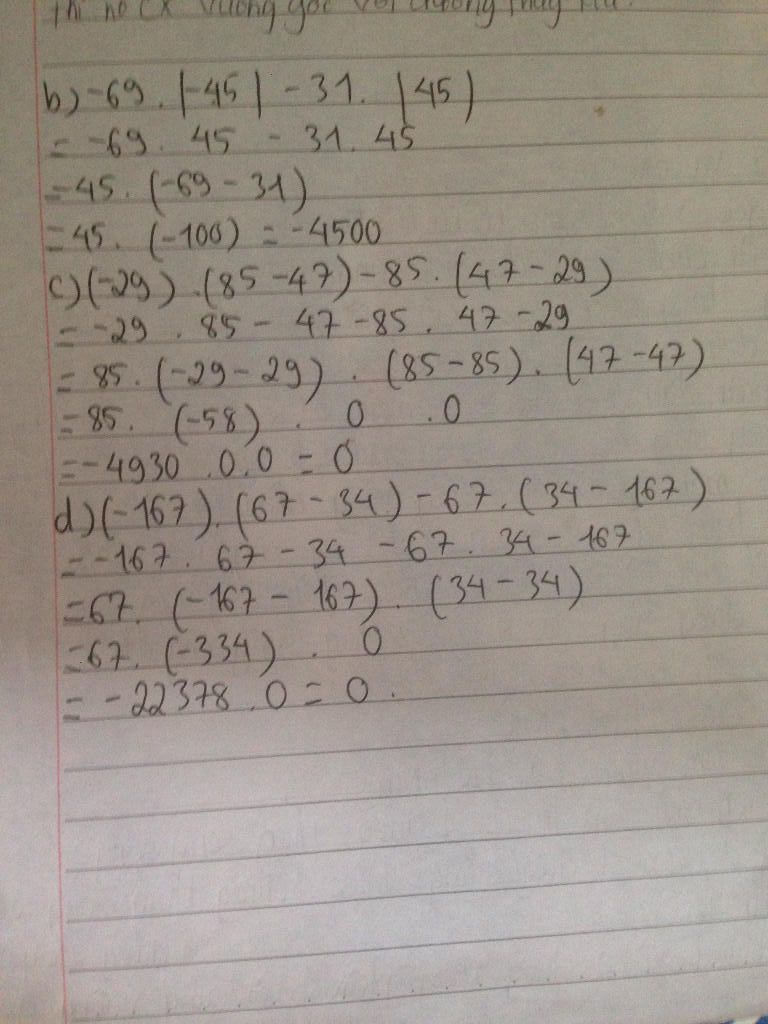 thì nó cx vuông góc với đường thẳng kia.
b) -69 . |-45| - 31. |45|
= -69. 45 - 31. 45
= 45. (-69 - 31)
= 45. (-100) = -4500
c) (-29) . (85 - 47) - 85. (47 - 29)
= -29 . 85 - 47 - 85. 47 - 29
= 85. (-29 - 29) . (85 - 85). (47 - 47)
= 85. (-58) . 0 . 0
= -4930 .0.0 = 0
d) (-167). (67 - 34) - 67. (34 - 167)
= -167. 67 - 34 - 67. 34 - 167
= 67. (-167 - 167) . (34 - 34)
= 67. (-334) . 0
= -22378 . 0 = 0.